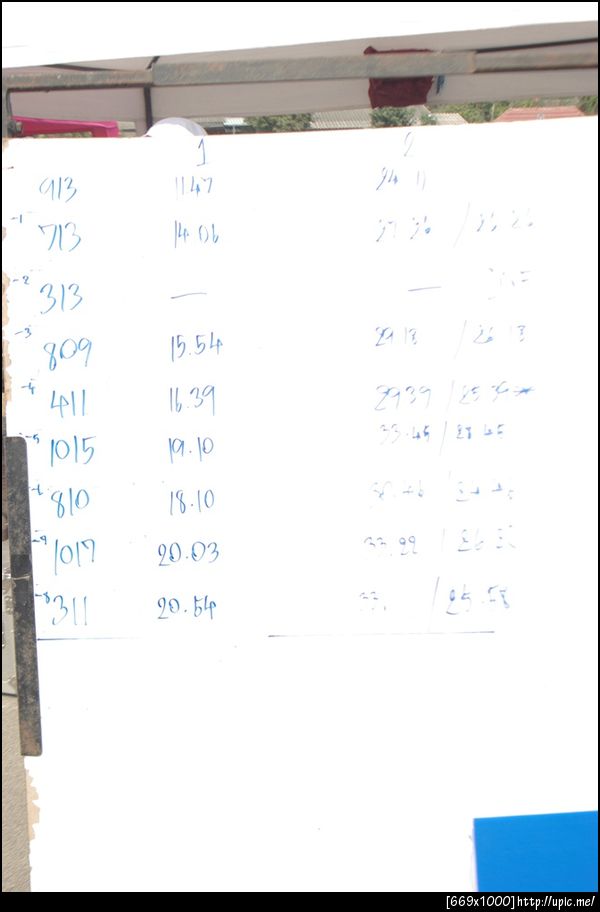 1 2
913 11.47 24 11
-1 713 14.06 37 36 /
-2 313 — —
-3 809 15.54 29 13 / 26 13
-4 411 16.39 29 39 / 25 39
-5 1015 19.10 33.45 / 28 45
-6 810 18.10
1017 20.03 33.22 /
-8 311 20.54 33. / 25.58
[669x1000]http://upic.me/